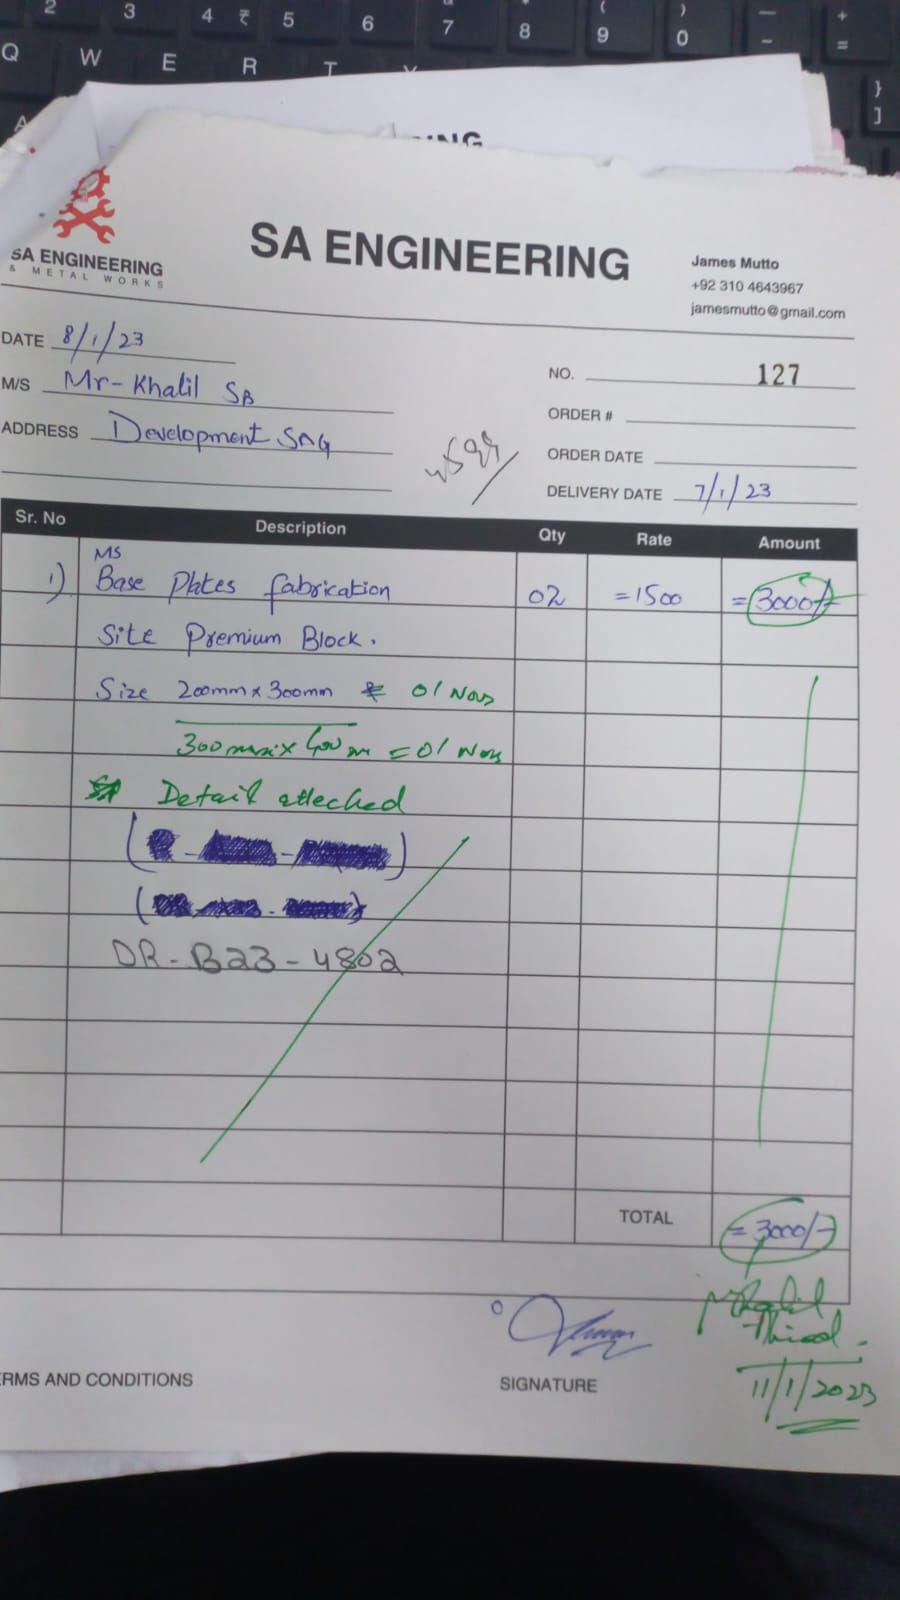 2 3 4 ₹ 5 6 7 8 ( 9 ) 0 — - + =
Q W E R T Y } ]
A
SA ENGINEERING
& METAL WORKS
SA ENGINEERING
James Mutto
+92 310 4643967
jamesmutto@gmail.com
DATE 8/1/23
M/S Mr-Khalil SB
ADDRESS Development SAG
NO. 127
ORDER #
ORDER DATE
DELIVERY DATE 7/1/23
Sr. No Description Qty Rate Amount
MS
1) Base Plates fabrication 02 =1500 =3000/-
Site Premium Block.
Size 200mm x 300mm 01 Nos
= 01 Nos
Detail attached
DR-B23-4802
TOTAL =3000/-
Khalil
11/1/2023
RMS AND CONDITIONS
SIGNATURE